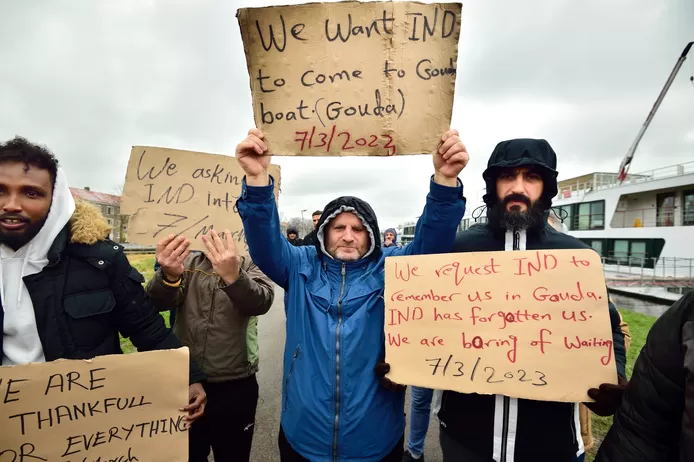 We Want IND
to come to Gouda
boat. (Gouda)
7/3/2023
We asking
IND in
7/Mar
We request IND to
remember us in Gouda.
IND has forgotten us.
We are boring of Waiting
7/3/2023
WE ARE
THANKFULL
OR EVERYTHING
March